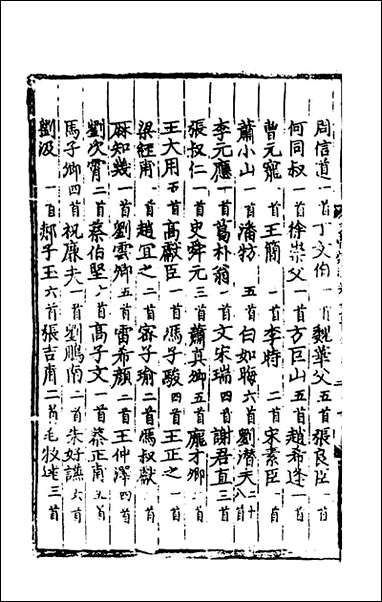 周信道一首丁文伯一首魏華父五首張良臣一首
何同叔一首徐崇父一首方巨山五首趙希逢一首
曹元寵一首王簡一首李時二首宋素臣一首
蕭小山一首潘牥五首白如晦六首劉潛夫二十八首
李元膺一首葛朴翁一首文宋瑞四首謝君直三首
張叔仁一首史舜元三首蕭真卿五首龐才卿二首
王大用五首高獻臣一首馮子駿四首王正之一首
梁經甫一首趙宜之二首密子瑜二首馮叔獻一首
麻知幾一首劉雲卿五首雷希顏二首王仲澤四首
劉次霄二首蔡伯堅首高子文一首蔡正甫五首
馬子卿四首祝廉夫一首劉鵬南二首朱好謙六首
劉汲一首郝子玉六首張吉甫二首毛牧達三首